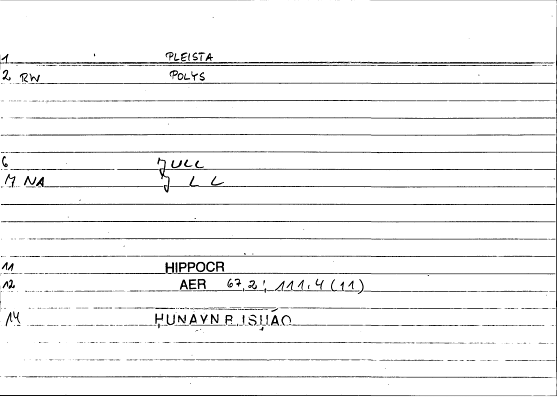 1 PLEISTA
2 RW POLYS
6 JULL
7 NA J L L
11 HIPPOCR
12 AER 67,2; 111.4 (11)
14 ḤUNAYN B. ISḤĀQ